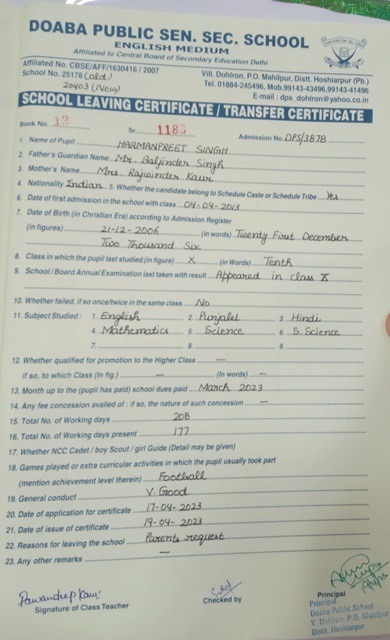 DOABA PUBLIC SEN. SEC. SCHOOL
ENGLISH MEDIUM
Affiliated to Central Board of Secondary Education Delhi
Affiliated No. CBSE/AFF/1630416 / 2007
School No. 25176 (old)
20403 (New)
Vill. Dohlron, P.O. Mahilpur, Distt. Hoshiarpur (Pb.)
Tel. 01884-245496, Mob.99143-43496,99143-41496
E-mail : dps_dohlron@yahoo.co.in
SCHOOL LEAVING CERTIFICATE / TRANSFER CERTIFICATE
Book No. 12 Sr. 1183 Admission No. DPS/3878
1. Name of Pupil HARMANPREET SINGH
2. Father's Guardian Name Mr. Baljinder Singh
3. Mother's Name Mrs. Rajwinder Kaur
4. Nationality Indian 5. Whether the candidate belong to Schedule Caste or Schedule Tribe Yes
6. Date of first admission in the school with class 04-04-2013
7. Date of Birth (in Christian Era) according to Admission Register
(in figures) 21-12-2006 (in words) Twenty First December
Two Thousand Six
8. Class in which the pupil last studied (in figure) X (in Words) Tenth
9. School / Board Annual Examination last taken with result Appeared in class X
10. Whether failed, if so once/twice in the same class No
11. Subject Studied : 1. English 2. Punjabi 3. Hindi
4. Mathematics 5. Science 6. S.Science
7. 8. 9.
12. Whether qualified for promotion to the Higher Class —
if so, to which Class (in fig.) — (in words) —
13. Month up to the (pupil has paid) school dues paid March 2023
14. Any fee concession availed of : if so, the nature of such concession —
15. Total No. of Working days 208
16. Total No. of Working days present 177
17. Whether NCC Cadet / boy Scout / girl Guide (Detail may be given)
18. Games played or extra curricular activities in which the pupil usually took part
(mention achievement level therein) Football
19. General conduct V. Good
20. Date of application for certificate 17-04-2023
21. Date of issue of certificate 19-04-2023
22. Reasons for leaving the school Parents request
23. Any other remarks —
Pawandeep Kaur
Signature of Class Teacher
Checked by
Principal
Principal
Doaba Public School
V. Dohlron, P.O. Mahilpur
Distt. Hoshiarpur